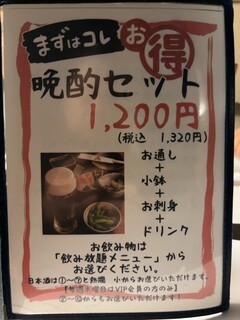 まずはコレ
お得
晩酌セット
1,200円
(税込 1,320円)
お通し
+
小鉢
+
お刺身
+
ドリンク
お飲み物は
「飲み放題メニュー」から
お選びください。
日本酒は①～⑦と熱燗 小からお選びいただけます。
VIP会員の方のみ】
からもお選びいただけます！